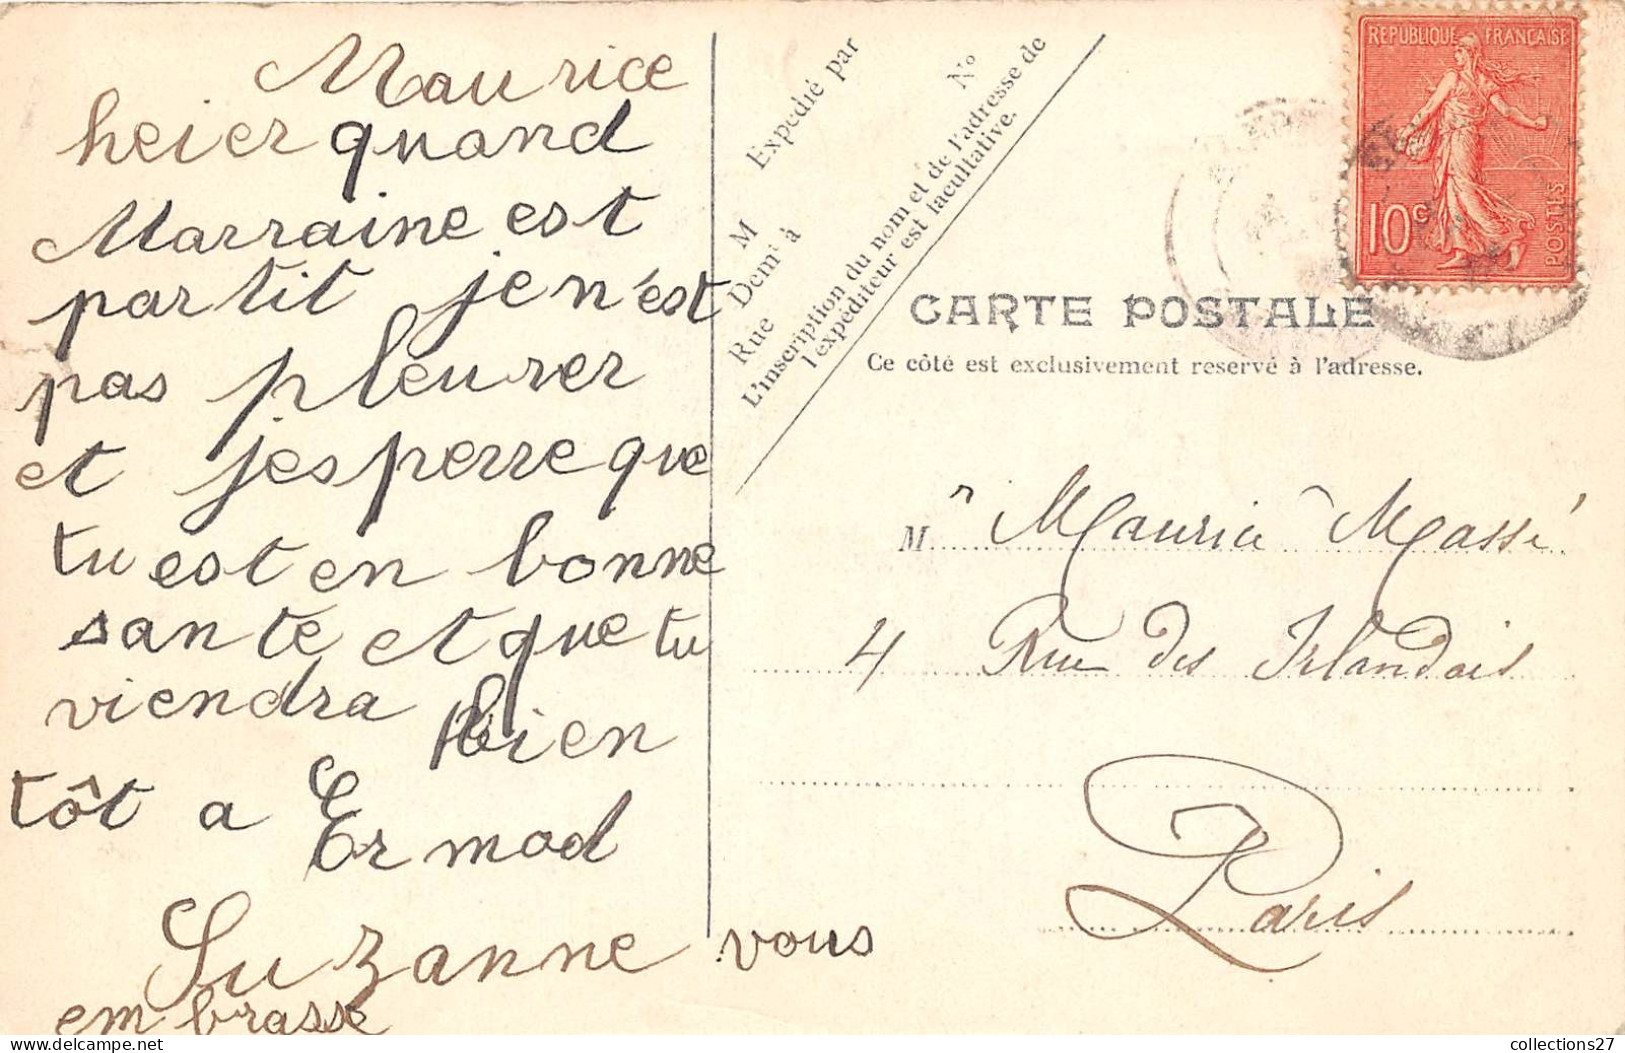 Maurice
heier quand
Marraine est
partit je n'est
pas pleurer
et jesperre que
tu est en bonne
sante et que tu
viendra bien
tôt a
Ermod
Suzanne vous
em brasse
Expedié par
M
Demt à
Rue
No
L'inscription du nom et de l'adresse de
l'expéditeur est facultative.
REPUBLIQUE FRANÇAISE
10c
POSTES
CARTE POSTALE
Ce côté est exclusivement reservé à l'adresse.
Mr Maurice Massé
4 Rue des Irlandais
Paris
collections27